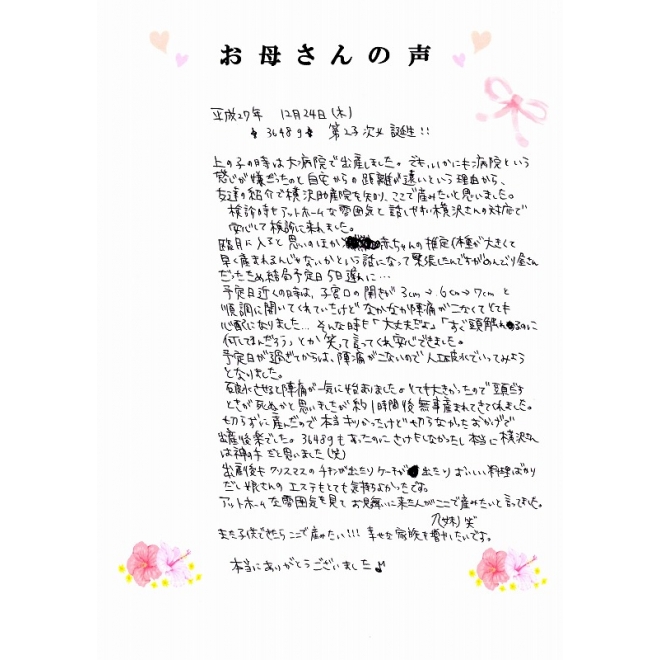 お母さんの声
平成27年 12月24日(木)
3648g 第2子 次女 誕生!!
上の子の時は大病院で出産しました。でも、いかにも病院という
感じが嫌だったのと自宅からの距離が遠いという理由から、
友達の紹介で横沢助産院を知り、ここで産みたいと思いました。
検診時もアットホームな雰囲気と話しやすい横沢さんの対応で
安心して検診に来れました。
臨月に入ると思いのほか赤ちゃんの推定体重が大きくて
早く産まれるんじゃないかという話になって緊張したんですがのんびり屋さん
だったため結局予定日5日遅れに…
予定日近くの時は、子宮口の開きが3cm→6cm→7cmと
順調に開いてくれていたけどなかなか陣痛がこなくてとても
心配になりました… そんな時も「大丈夫だよ」「すご頭触れるのに
何してまんだろう」とか笑って言ってくれ安心できました。
予定日が過ぎてからは、陣痛がこないので人工破水でいってみよう
となりました。
破水させると陣痛が一気に始まりました。とても大きかったので頭だす
ときが死ぬかと思いましたが約1時間後無事産まれてきてくれました。
切らずに産んだので本当キツかったけど切らなかったおかげで
出産後楽でした。3648gもあったのにさけもしなかったし本当に横沢さん
は神の手だと思いました(笑)
出産後もクリスマスのチキンが出たりケーキが出たりおいしい料理ばかり
だし娘さんのエステもとても気持ちよかったです。
アットホームな雰囲気を見てお見舞いに来た人がここで産みたいと言ってました。
また子供できたらここで産みたい!!! 幸せな家族を増やしたいです。
本当にありがとうございました♪